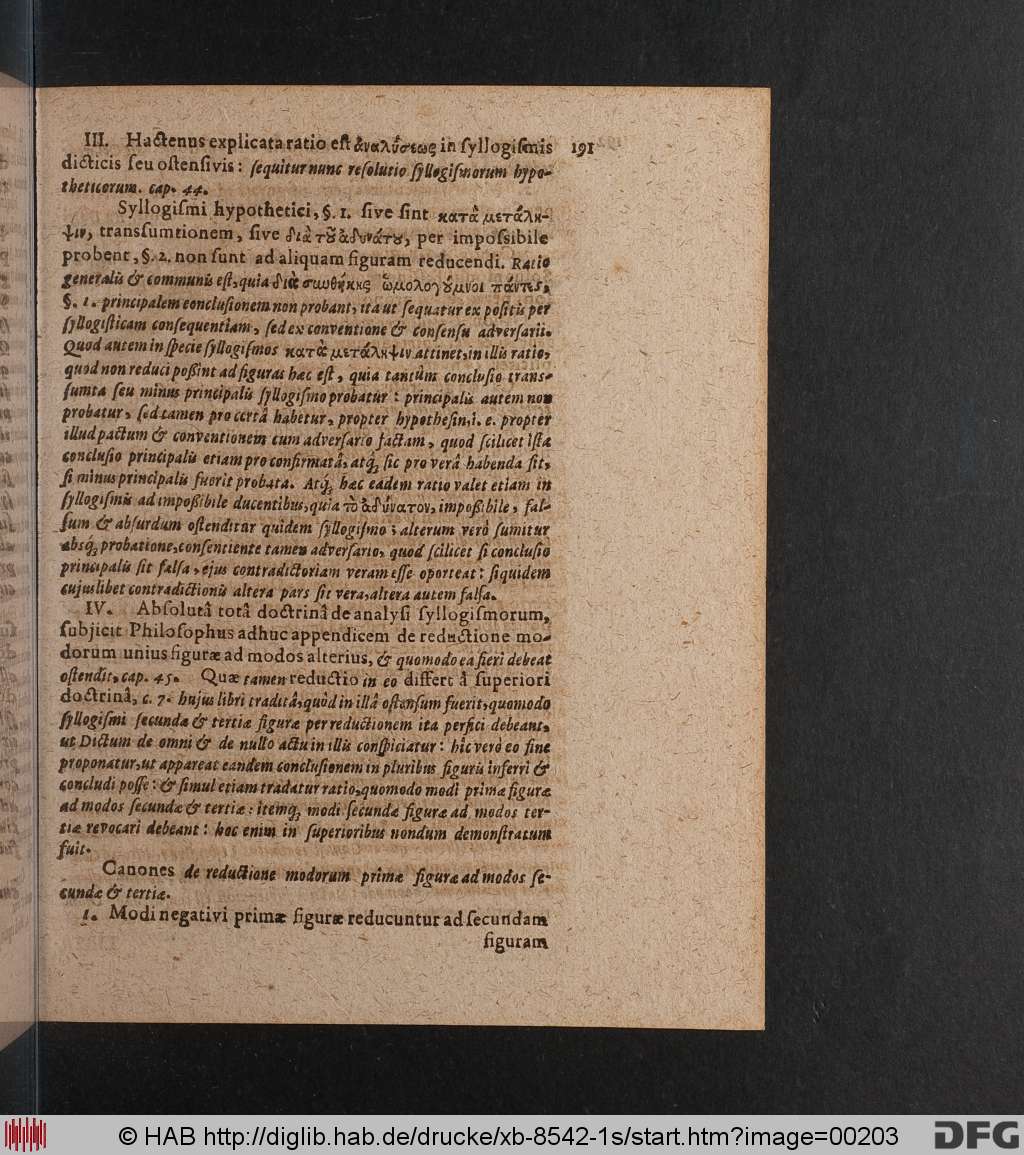 III. Hactenus explicata ratio eſt ἀναλύσεως in ſyllogiſmis 191
dicticis ſeu oſtenſivis: ſequitur nunc reſolutio ſyllogiſmorum hypo-
theticorum. cap. 44.
Syllogiſmi hypothetici, §. 1. ſive ſint κατὰ μετάλη-
ψιν, transſumtionem, ſive διὰ τοῦ ἀδυνάτου, per impoſsibile
probent, §. 2. non ſunt ad aliquam figuram reducendi. Ratio
generalis & communis eſt, quia διὰ συνθήκης ὡμολογούμενοι πάντες,
§. 1. principalem concluſionem non probant, ita ut ſequatur ex poſitis per
ſyllogiſticam conſequentiam, ſed ex conventione & conſenſu adverſarii.
Quod autem in ſpecie ſyllogiſmos κατὰ μετάληψιν attinet, in illis ratio,
quod non reduci poßint ad figuras hæc eſt, quia tantùm concluſio trans-
ſumta ſeu minùs principalis ſyllogiſmo probatur: principalis autem non
probatur, ſed tamen pro certâ habetur, propter hypotheſin, i. e. propter
illud pactum & conventionem cum adverſario factam, quod ſcilicet iſta
concluſio principalis etiam pro confirmatâ, atq́; ſic pro verâ habenda ſit,
ſi minùs principalis fuerit probata. Atq́; hæc eadem ratio valet etiam in
ſyllogiſmis ad impoßibile ducentibus, quia τὸ ἀδύνατον, impoßibile, fal-
ſum & abſurdum oſtenditur quidem ſyllogiſmo; alterum verò ſumitur
absq́; probatione, conſentiente tamen adverſario, quod ſcilicet ſi concluſio
principalis ſit falſa, ejus contradictoriam veram eſſe oporteat: ſiquidem
cujuslibet contradictionis altera pars ſit vera, altera autem falſa.
IV. Abſolutâ totâ doctrinâ de analyſi ſyllogiſmorum,
ſubjicit Philoſophus adhuc appendicem de reductione mo-
dorum unius figuræ ad modos alterius, & quomodo ea fieri debeat
oſtendit, cap. 45. Quæ tamen reductio in eo differt â ſuperiori
doctrinâ, c. 7. hujus libri traditâ, quòd in illâ oſtenſum fuerit, quomodo
ſyllogiſmi ſecundæ & tertiæ figuræ per reductionem ita perfici debeant,
ut Dictum de omni & de nullo actu in illis conſpiciatur: hîc verò eo fine
proponatur, ut appareat eandem concluſionem in pluribus figuris inferri &
concludi poſſe: & ſimul etiam tradatur ratio, quomodo modi primæ figuræ
ad modos ſecundæ & tertiæ: itemq́; modi ſecundæ figuræ ad modos ter-
tiæ revocari debeant: hoc enim in ſuperioribus nondum demonſtratum
fuit.
Canones de reductione modorum primæ figuræ ad modos ſe-
cundæ & tertiæ.
1. Modi negativi primæ figuræ reducuntur ad ſecundam
figuram
© HAB http://diglib.hab.de/drucke/xb-8542-1s/start.htm?image=00203
DFG